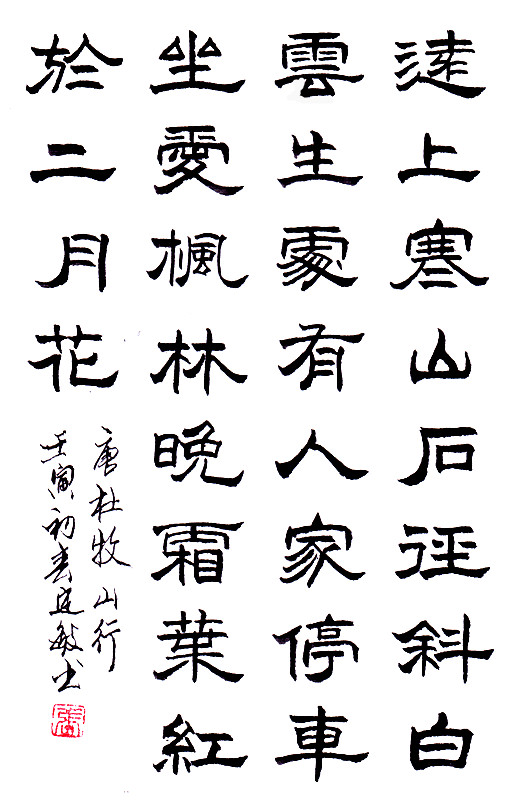 遠上寒山石徑斜白
雲生處有人家停車
坐愛楓林晚霜葉紅
於二月花
唐杜牧山行
壬寅初春廷敏书